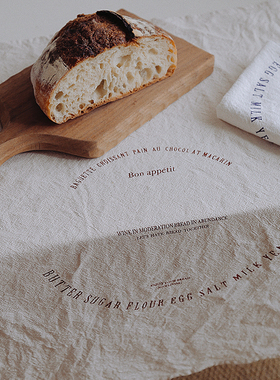 EGG SALT MILK
BAGUETTE CROISSANT PAIN AU CHOCOLAT MACARON
Bon appétit
WINE IN MODERATION BREAD IN ABUNDANCE
LET'S HAVE BREAD TOGETHER
BUTTER SUGAR FLOUR EGG SALT MILK